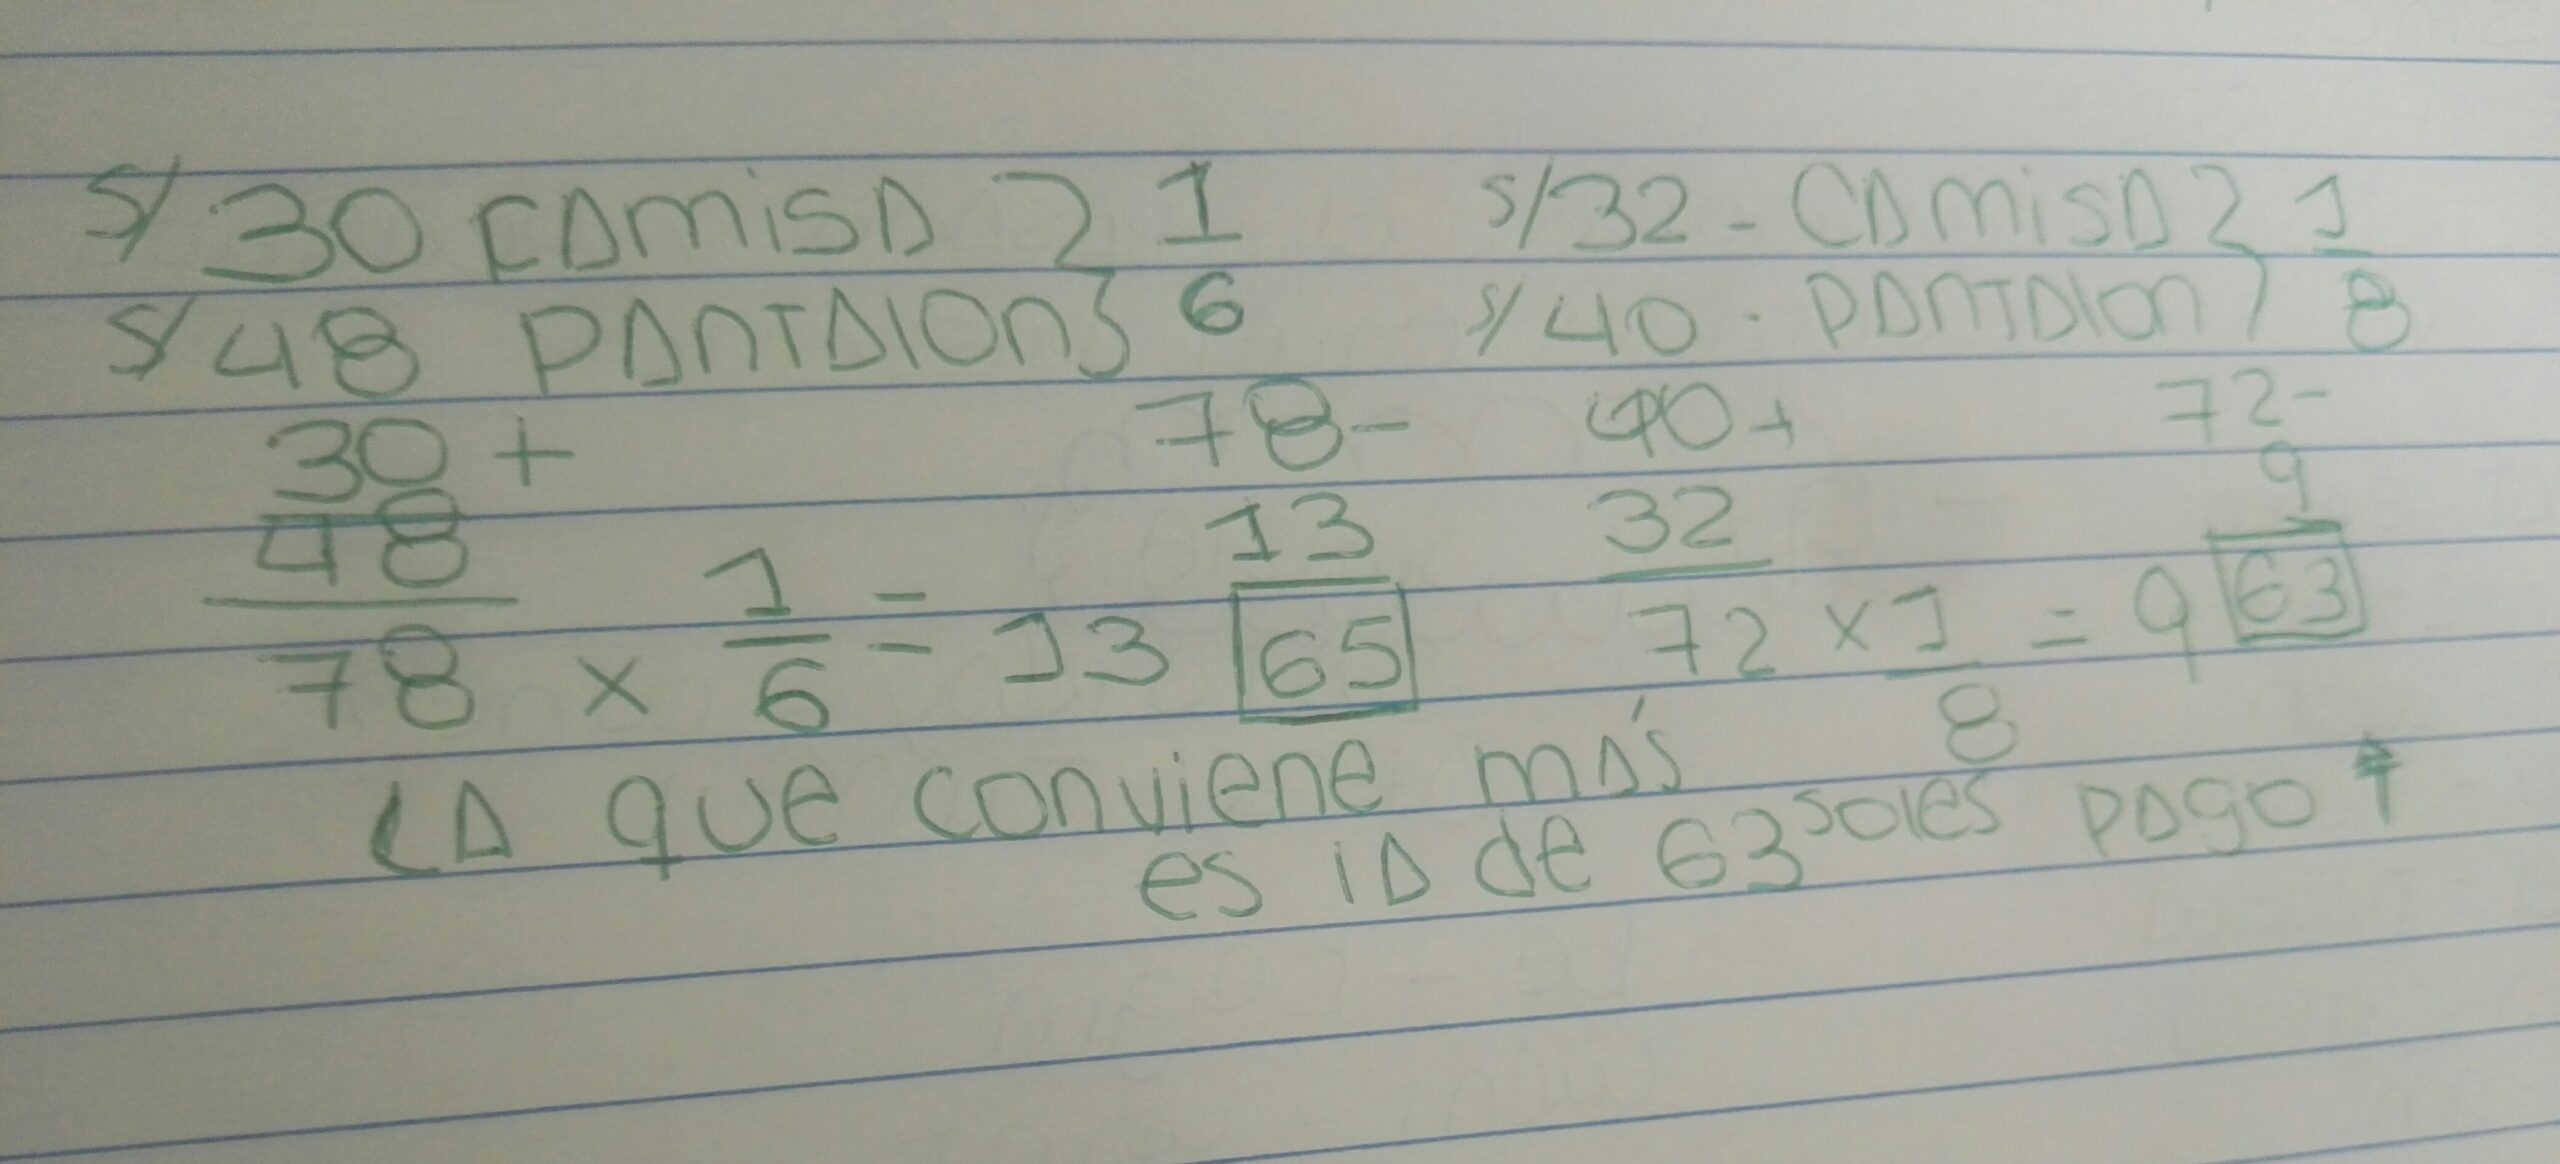 S/ 30 CAMISA } 1/6
S/ 48 PANTALON }
30 +
48
78 × 1/6 = 13
78 -
13
65
S/ 32 - CAMISA } 1/8
S/ 40 - PANTALON }
40 +
32
72 × 1/8 = 9
72 -
9
63
LA que conviene más
es lA de 63 soles pAgo